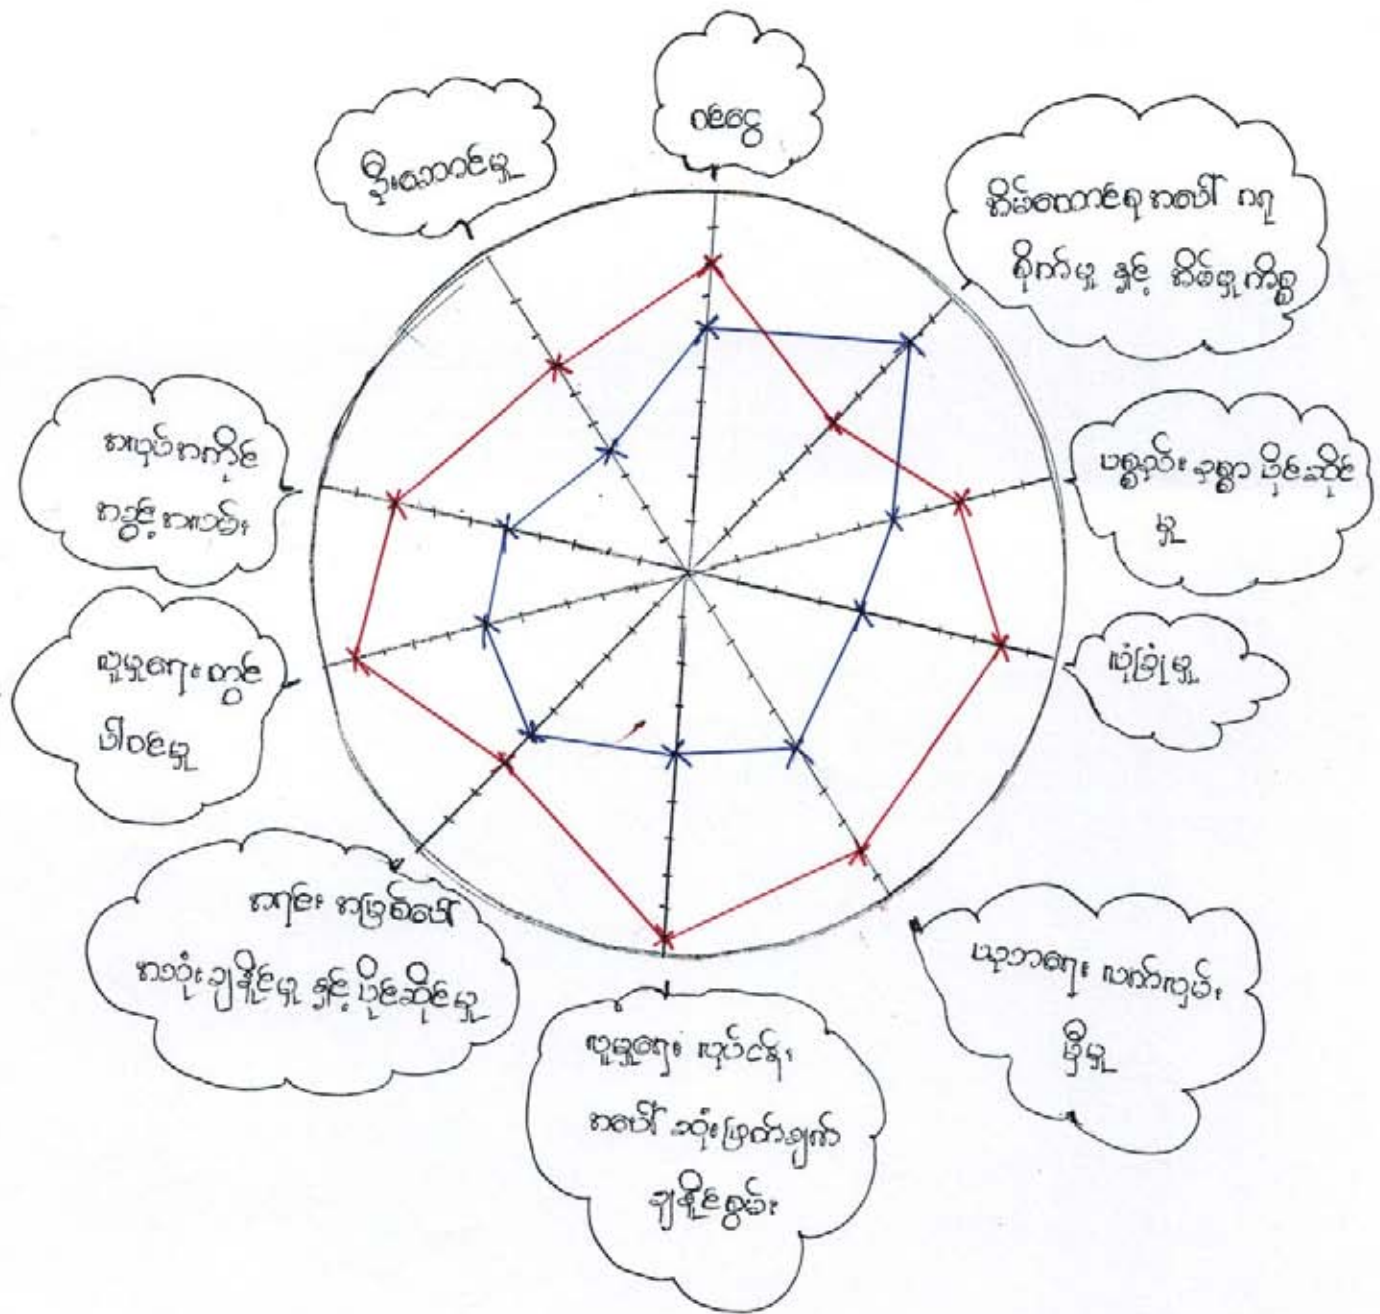 ဝင်ငွေ
ဦးဆောင်မှု
အိမ်ထောင်စု အပေါ် ဂရု
စိုက်မှု နှင့် အိမ်မှုကိစ္စ
ပစ္စည်း ဥစ္စာ ပိုင်ဆိုင်
မှု
လုံခြုံမှု
ပညာရေး လက်လှမ်း
မှီမှု
လူမှုရေး လုပ်ငန်း
အပေါ် ဆုံးဖြတ်ချက်
ချနိုင်စွမ်း
အရင်း အမြစ်ပေါ်
အသုံးချနိုင်မှု နှင့် ပိုင်ဆိုင်မှု
လူမှုရေးတွင်
ပါဝင်မှု
အလုပ်အကိုင်
အခွင့်အလမ်း